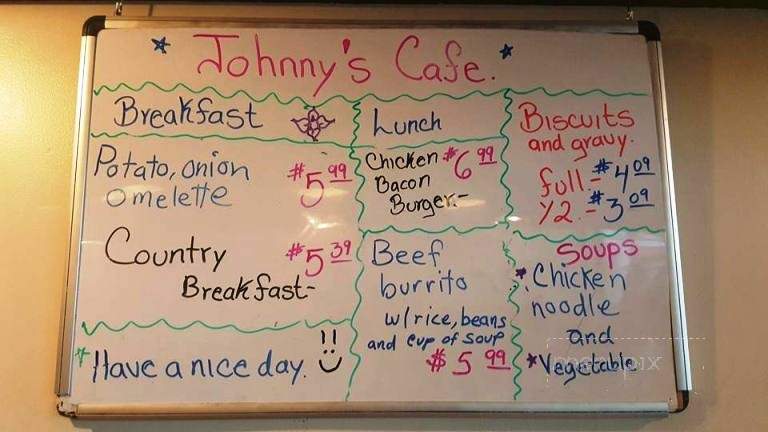 Johnny's Cafe.
Breakfast
Potato, onion
omelette
$5 99
Country
Breakfast-
$5 39
Have a nice day.
Lunch
Chicken $6 99
Bacon
Burger.-
Beef
burrito
w/rice, beans
and cup of soup
$5 99
Biscuits
and gravy.
full - $4 09
1/2. - $3 09
Soups
Chicken
noodle
and
Vegetable